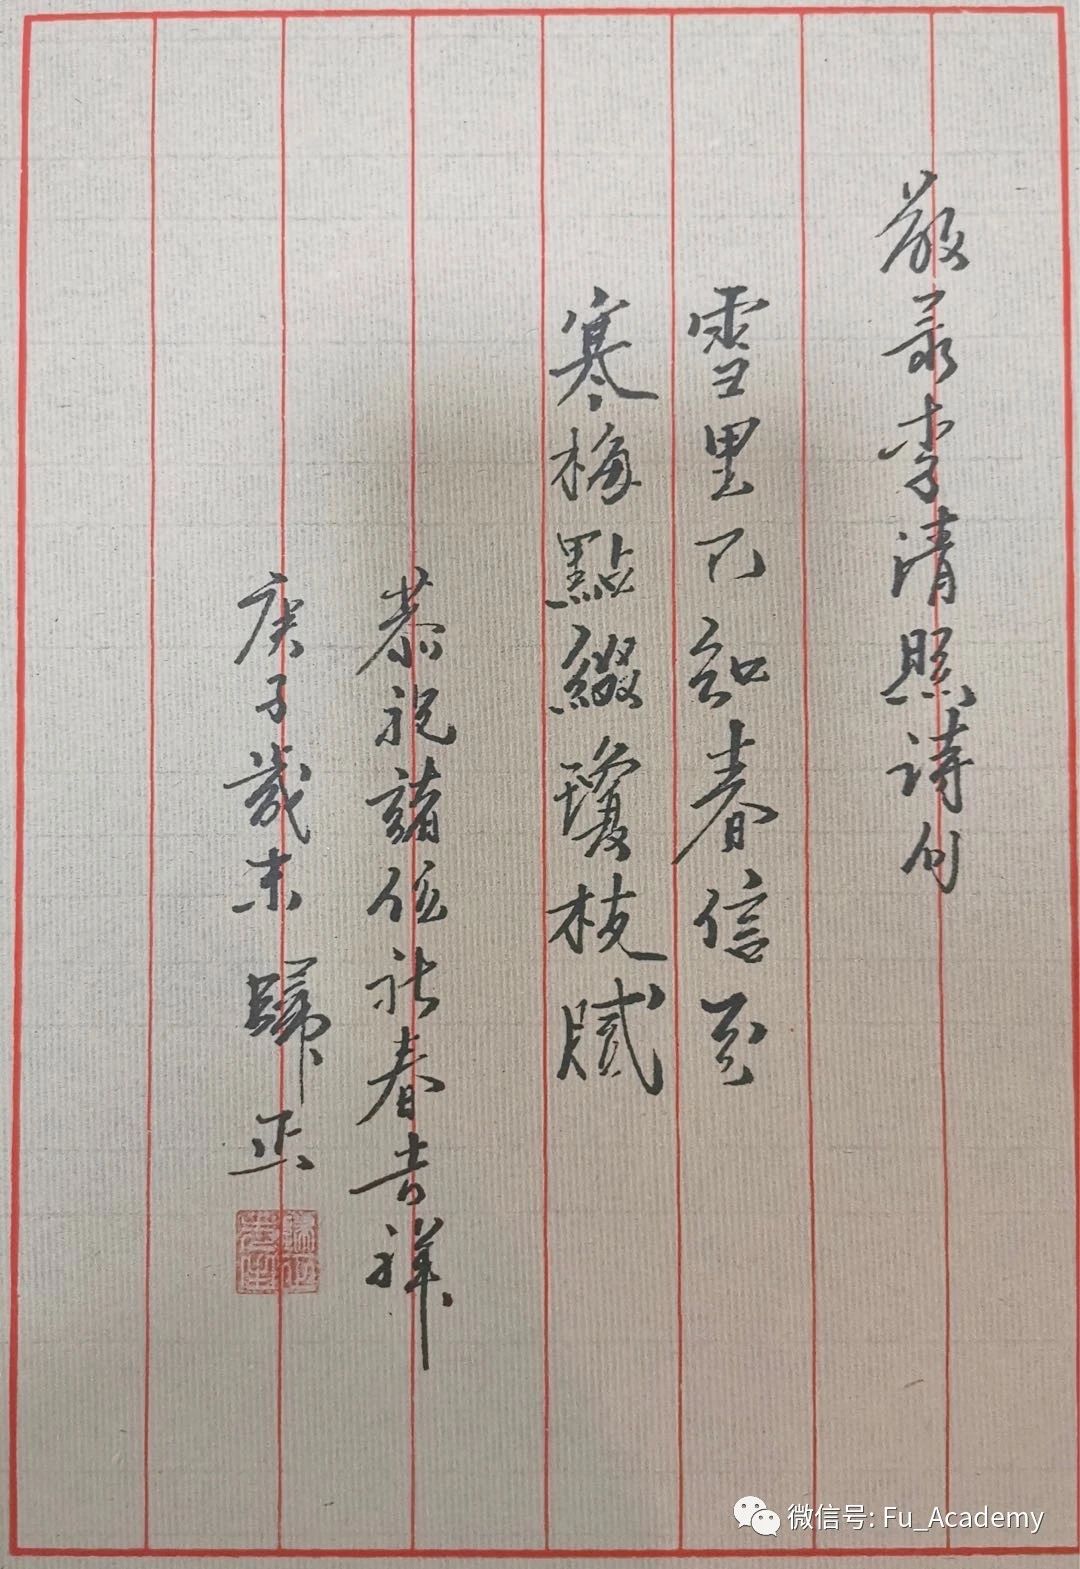 敬录李清照詩句
雪里已知春信至
寒梅點綴瓊枝膩
恭祝諸位新春吉祥
庚子歲末 歸正
微信号: Fu_Academy